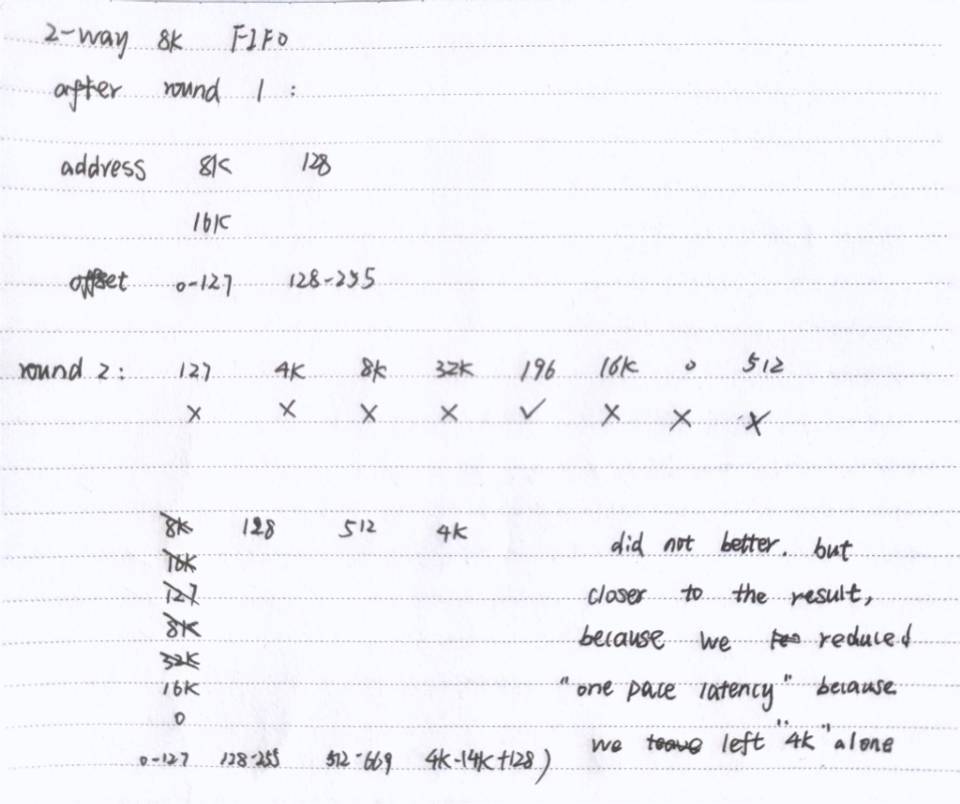 2-way 8K FIFO
after round 1 :
address 8K 128
16K
offset 0-127 128-255
round 2 : 127 4K 8K 32K 196 16K 0 512
× × × × ✓ × × ×
8K 128 512 4K
16K
127
8K
32K
16K
0
0-127 128-255 512-669 4K-(4K+128)
did not better. but
closer to the result,
because we reduced
"one pace latency" because
we left "4K" alone